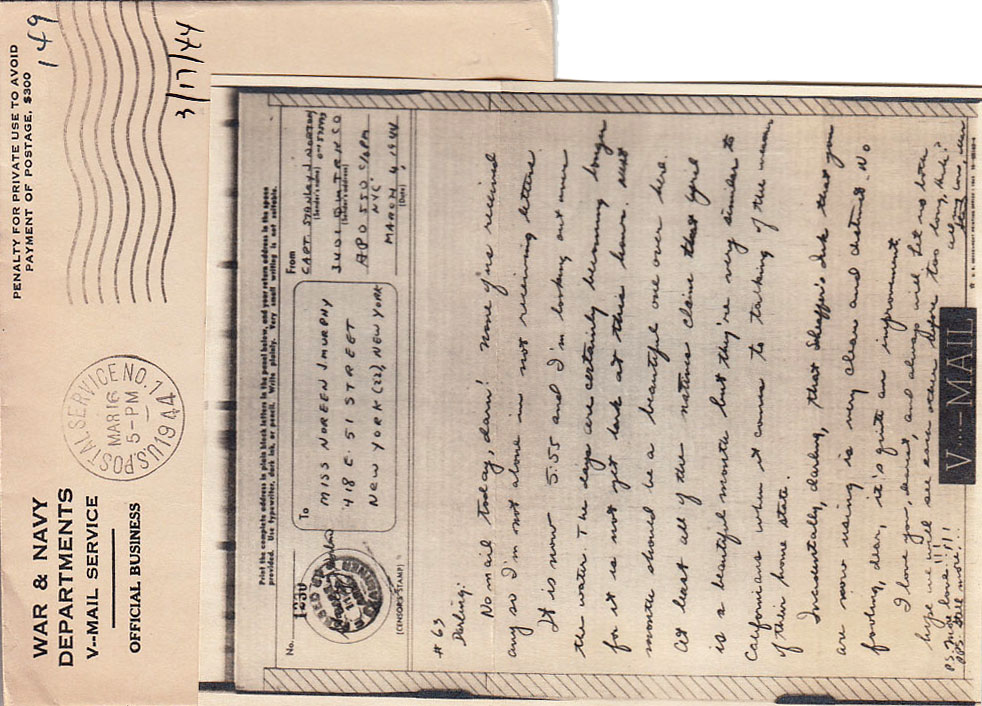 PENALTY FOR PRIVATE USE TO AVOID
PAYMENT OF POSTAGE, $300
149
3/17/44
U.S. POSTAL SERVICE NO. 7
MAR 16
5-PM
1944
WAR & NAVY
DEPARTMENTS
V-MAIL SERVICE
OFFICIAL BUSINESS
Print the complete address in plain block letters in the panel below, and your return address in the space
provided. Use typewriter, dark ink, or pencil. Write plainly. Very small writing is not suitable.
No.
1230
(CENSOR'S STAMP)
To
MISS NOREEN J. MURPHY
418 E. 51 STREET
NEW YORK (22), NEW YORK
From
CAPT. STANLEY J. NORTON
(Sender's name)
(Sender's address)
APO 550 c/o PM
NYC
MARCH 4, 1944
(Date)
# 63
Darling:
No mail today, darn! None of us received
any so I'm not alone in not receiving letters.
It is now 5:55 and I'm looking out over
the water. The days are certainly becoming longer
for it is not yet dark at this hour. Next
month should be a beautiful one over here.
At least all of the natives claim that April
is a beautiful month but they're very similar to
Californians when it comes to talking of the
of their home state.
Incidentally, darling, that Sheaffer's Ink that you
are now using is very clear and distinct. No
fooling, dear, it's quite an improvement.
I love you, dearest, and always will. Let us both
hope we will see each other before too long, huh?
All my love, ever
Stan
P.S. More love!!!!
PPS. Still more!!!
V···—MAIL